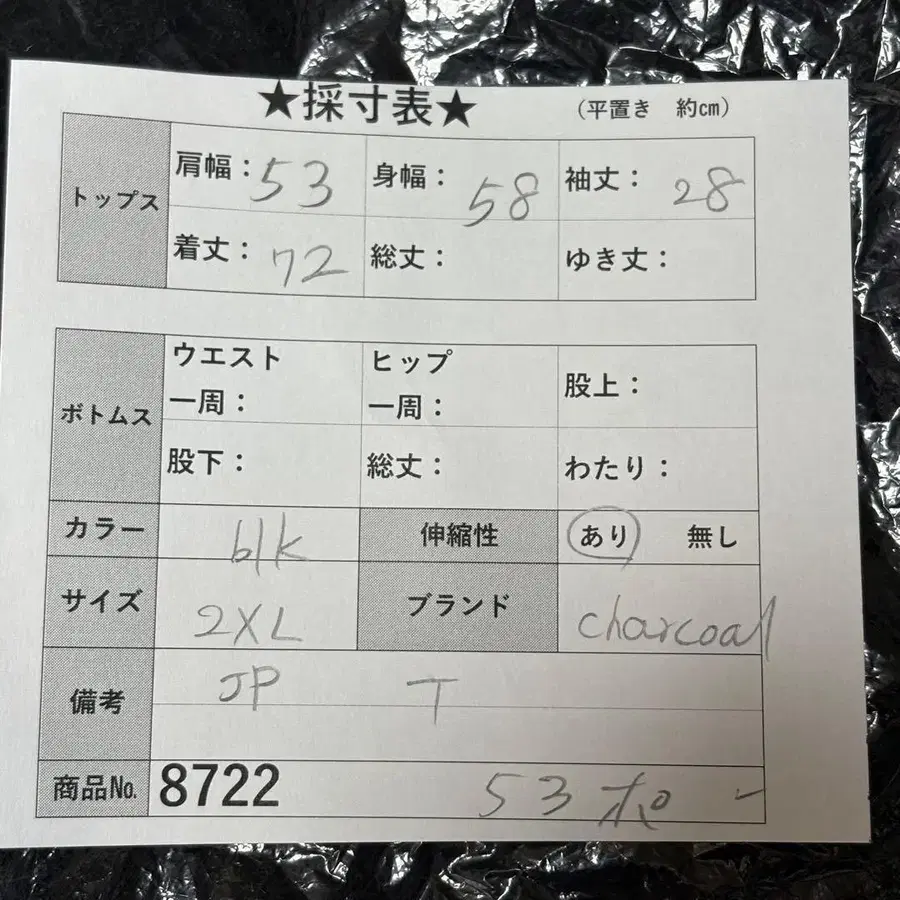 ★採寸表★ (平置き 約㎝)
トップス 肩幅：53 身幅：58 袖丈：28
着丈：72 総丈： ゆき丈：
ボトムス ウエスト一周： ヒップ一周： 股上：
股下： 総丈： わたり：
カラー blk 伸縮性 あり 無し
サイズ 2XL ブランド charcoal
備考 JP T
商品No. 8722 53 ポ